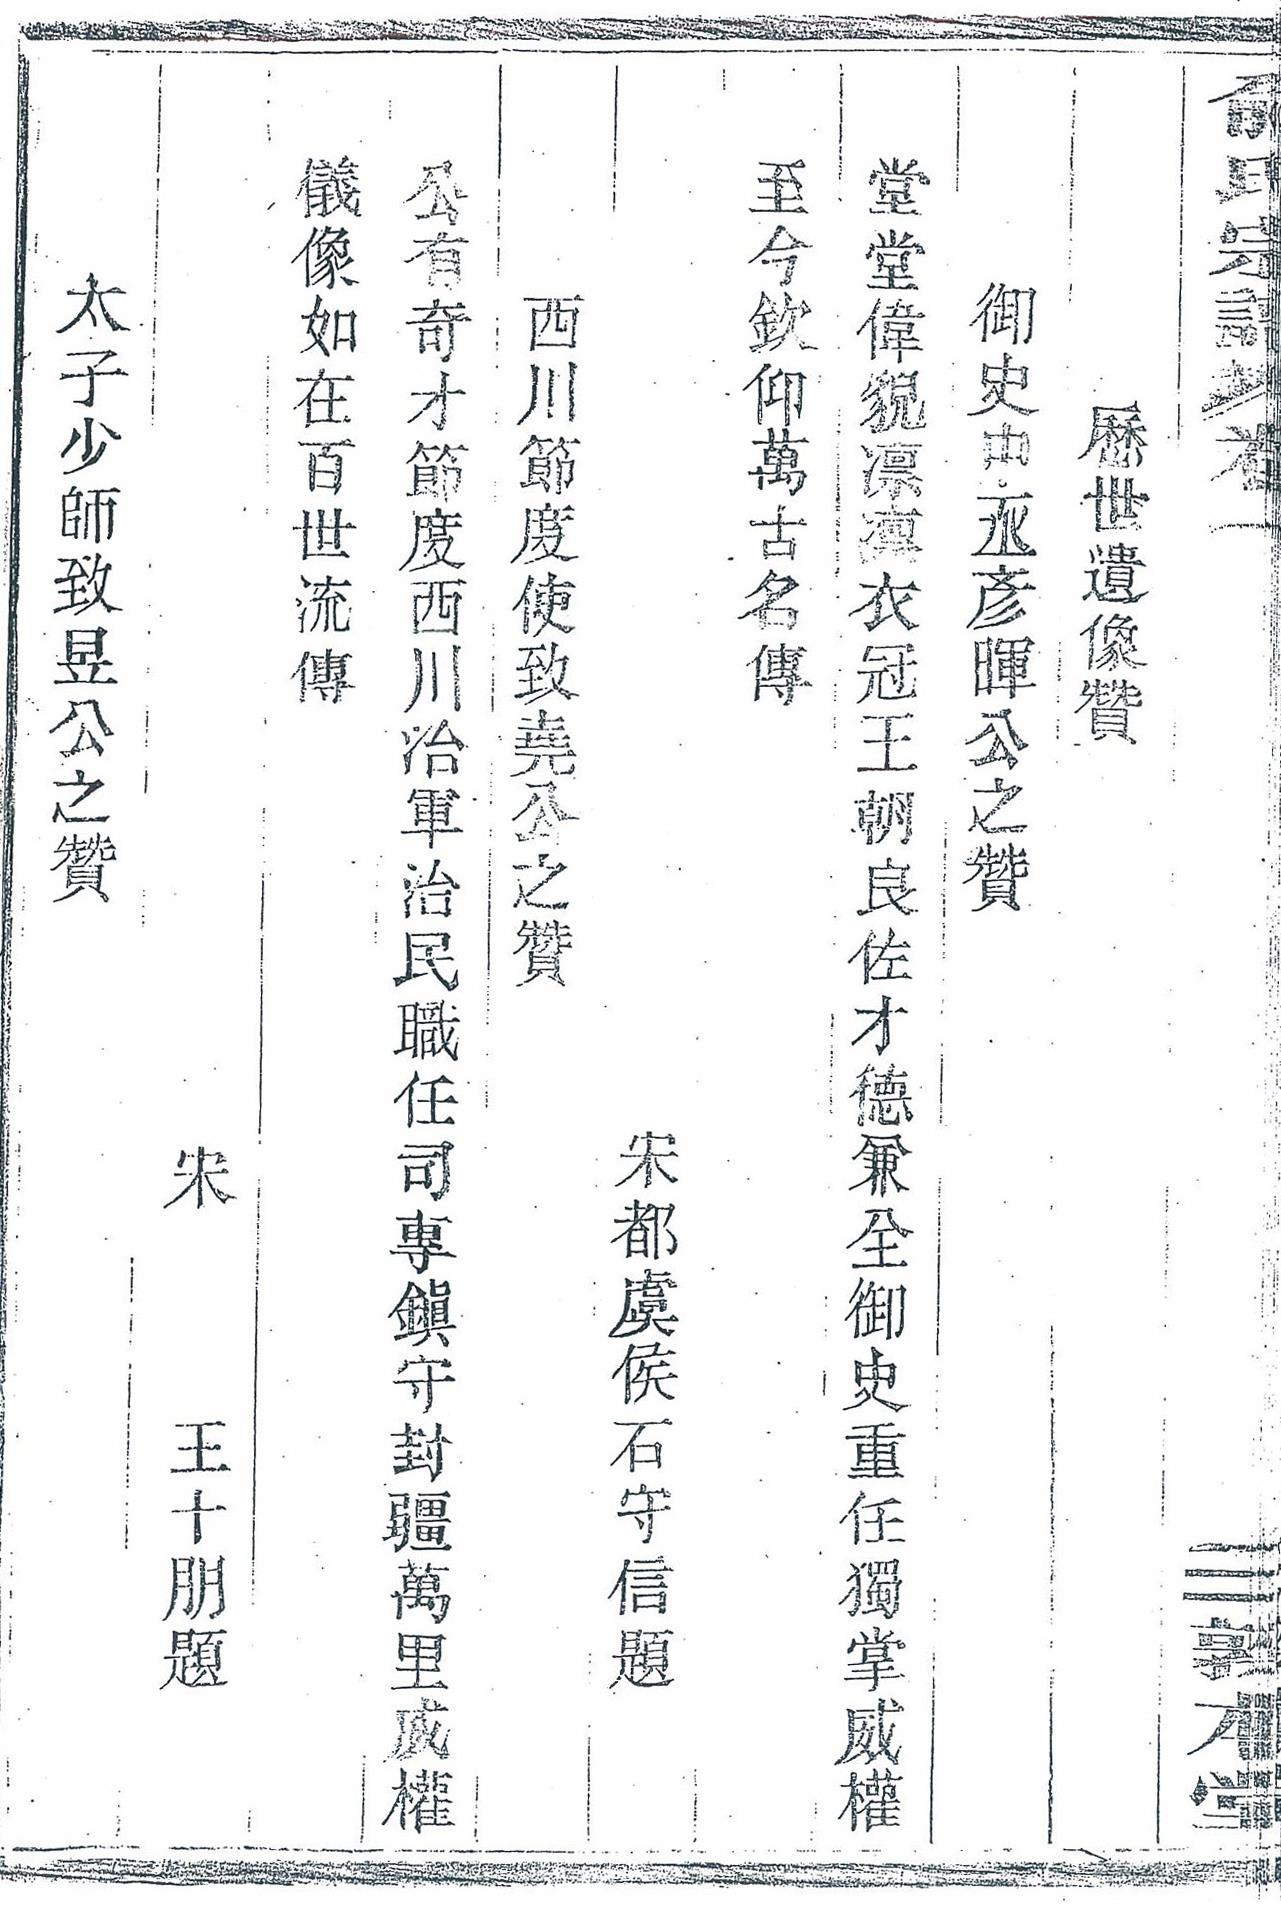 俞氏宗譜卷一
三 敦本堂
歷世遺像贊
御史中丞彥暉公之贊
堂堂偉貌凛凛衣冠王朝良佐才德兼全御史重任獨掌威權
至今欽仰萬古名傳
宋都虞侯石守信題
西川節度使致堯公之贊
公有奇才節度西川治軍治民職任司專鎭守封疆萬里威權
儀像如在百世流傳
宋 王十朋題
太子少師致昱公之贊